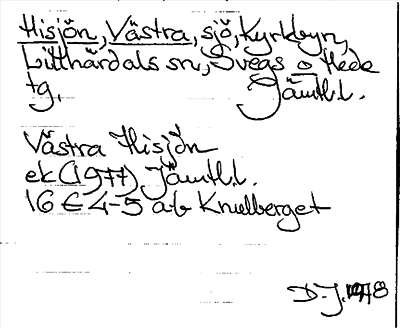 Hisjön, Västra, sjö, Kyrkbyn,
Litthärdals sn, Svegs o Hede
tg. Jämtl.l.
Västra Hisjön
ek (1977) Jämtl.l.
16 E 4-5 a-b Knulberget
D.J. 1978